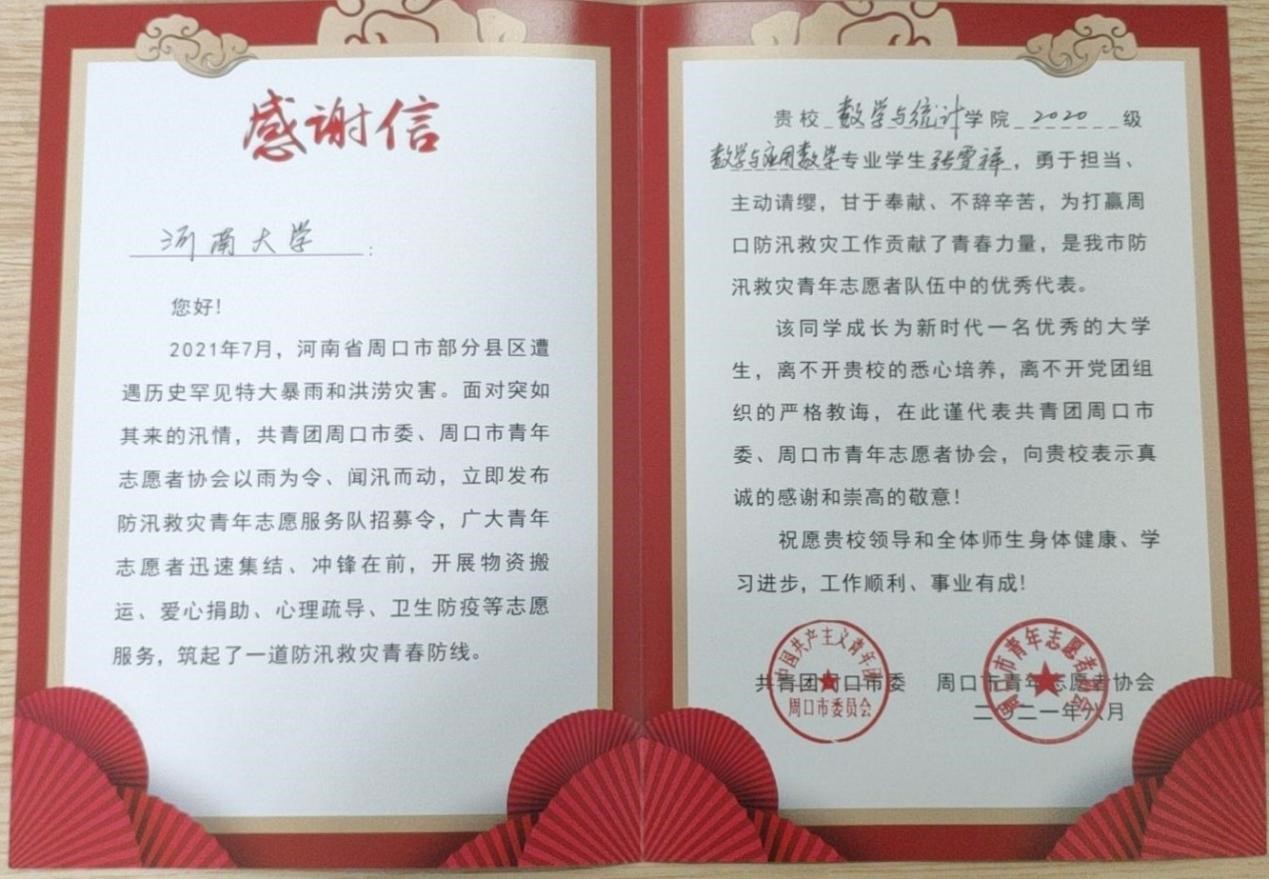 感谢信
河南大学:
您好!
2021年7月，河南省周口市部分县区遭
遇历史罕见特大暴雨和洪涝灾害。面对突如
其来的汛情，共青团周口市委、周口市青年
志愿者协会以雨为令、闻汛而动，立即发布
防汛救灾青年志愿服务队招募令，广大青年
志愿者迅速集结、冲锋在前，开展物资搬
运、爱心捐助、心理疏导、卫生防疫等志愿
服务，筑起了一道防汛救灾青春防线。
贵校数学与统计学院2020级
数学与应用数学专业学生张雪祥，勇于担当、
主动请缨，甘于奉献、不辞辛苦，为打赢周
口防汛救灾工作贡献了青春力量，是我市防
汛救灾青年志愿者队伍中的优秀代表。
该同学成长为新时代一名优秀的大学
生，离不开贵校的悉心培养，离不开党团组
织的严格教诲，在此谨代表共青团周口市
委、周口市青年志愿者协会，向贵校表示真
诚的感谢和崇高的敬意!
祝愿贵校领导和全体师生身体健康、学
习进步，工作顺利、事业有成!
共青团周口市委 周口市青年志愿者协会
二〇二一年八月
中国共产主义青年团
周口市委员会
周口市青年志愿者协会